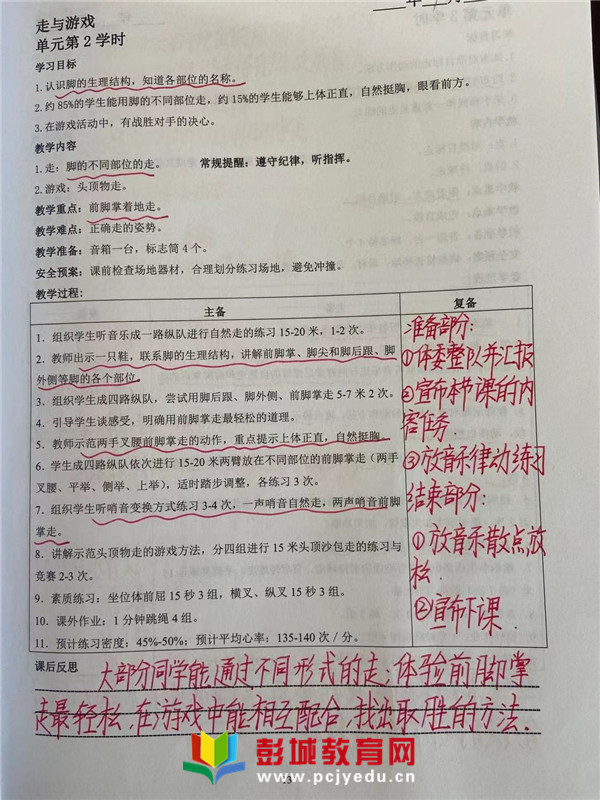 走与游戏
单元第2学时
学习目标
1.认识脚的生理结构，知道各部位的名称。
2.约85%的学生能用脚的不同部位走，约15%的学生能够上体正直，自然挺胸，眼看前方。
3.在游戏活动中，有战胜对手的决心。
教学内容
1.走：脚的不同部位的走。 常规提醒：遵守纪律，听指挥。
2.游戏：头顶物走。
教学重点：前脚掌着地走。
教学难点：正确走的姿势。
教学准备：音箱一台，标志筒4个。
安全预案：课前检查场地器材，合理划分练习场地，避免冲撞。
教学过程：
主备
1. 组织学生听音乐成一路纵队进行自然走的练习15-20米，1-2次。
2. 教师出示一只鞋，联系脚的生理结构，讲解前脚掌、脚尖和脚后跟、脚
外侧等脚的各个部位。
3. 组织学生成四路纵队，尝试用脚后跟、脚外侧、前脚掌走5-7米2次。
4. 引导学生谈感受，明确用前脚掌走最轻松的道理。
5. 教师示范两手叉腰前脚掌走的动作，重点提示上体正直，自然挺胸。
6. 学生成四路纵队依次进行15-20米两臂放在不同部位的前脚掌走（两手
叉腰、平举、侧举、上举），适时踏步调整，各练习3次。
7. 组织学生听哨音变换方式练习3-4次，一声哨音自然走，两声哨音前脚
掌走。
8. 讲解示范头顶物走的游戏方法，分四组进行15米头顶沙包走的练习与
竞赛2-3次。
9. 素质练习：坐位体前屈15秒3组，横叉、纵叉15秒3组。
10. 课外作业：1分钟跳绳4组。
11. 预计练习密度：45%-50%；预计平均心率：135-140次/分。
复备
准备部分：
①体委整队并汇报
②宣布本节课的内
容任务.
③放音乐律动练习
结束部分：
①放音乐散点放
松.
②宣布下课
课后反思
大部分同学能通过不同形式的走，体验前脚掌
走最轻松，在游戏中能相互配合，找出取胜的方法.
彭城教育网
www.pcjyedu.cn